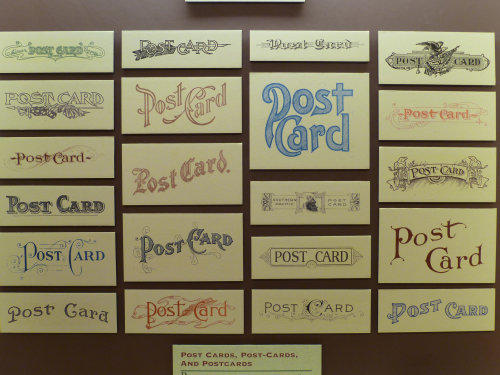 POST CARD
POST CARD
-Post Card-
POST CARD
Post Card
Post Card
POST CARD
Post Card
Post Card.
POST CARD
Post Card
Post Card
Post
Card
SOUTHERN POST
PACIFIC CARD
POST CARD
POST CARD
POST CARD
-Post Card-
POST CARD
Post
Card
POST CARD
POST CARDS, POST-CARDS,
AND POSTCARDS